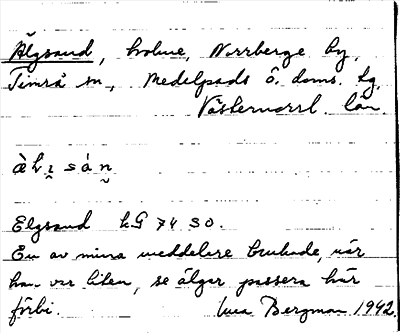 Älgsand, holme, Norrberge by,
Timrå sn, Medelpads ö. doms. tg,
Västernorrl. län.
Elgsand kG 74 SO.
En av mina meddelare brukade, när
han var liten, se älgar passera här
förbi. Bergman 1942.